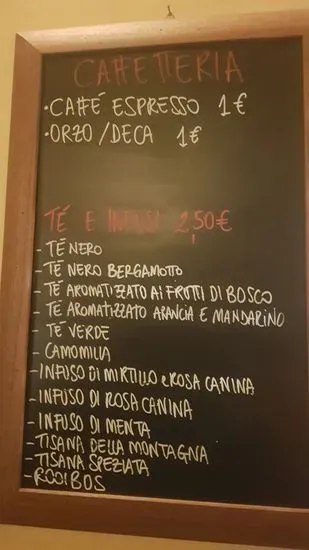 CAFFETTERIA
• CAFFÉ ESPRESSO 1€
• ORZO/DECA 1€
TÉ E INFUSI 2,50€
- TÉ NERO
- TÉ NERO BERGAMOTTO
- TÉ AROMATIZZATO AI FRUTTI DI BOSCO
- TÉ AROMATIZZATO ARANCIA E MANDARINO
- TÉ VERDE
- CAMOMILLA
- INFUSO DI MIRTILLO e ROSA CANINA
- INFUSO DI ROSA CANINA
- INFUSO DI MENTA
- TISANA DELLA MONTAGNA
- TISANA SPEZIATA
- ROOIBOS